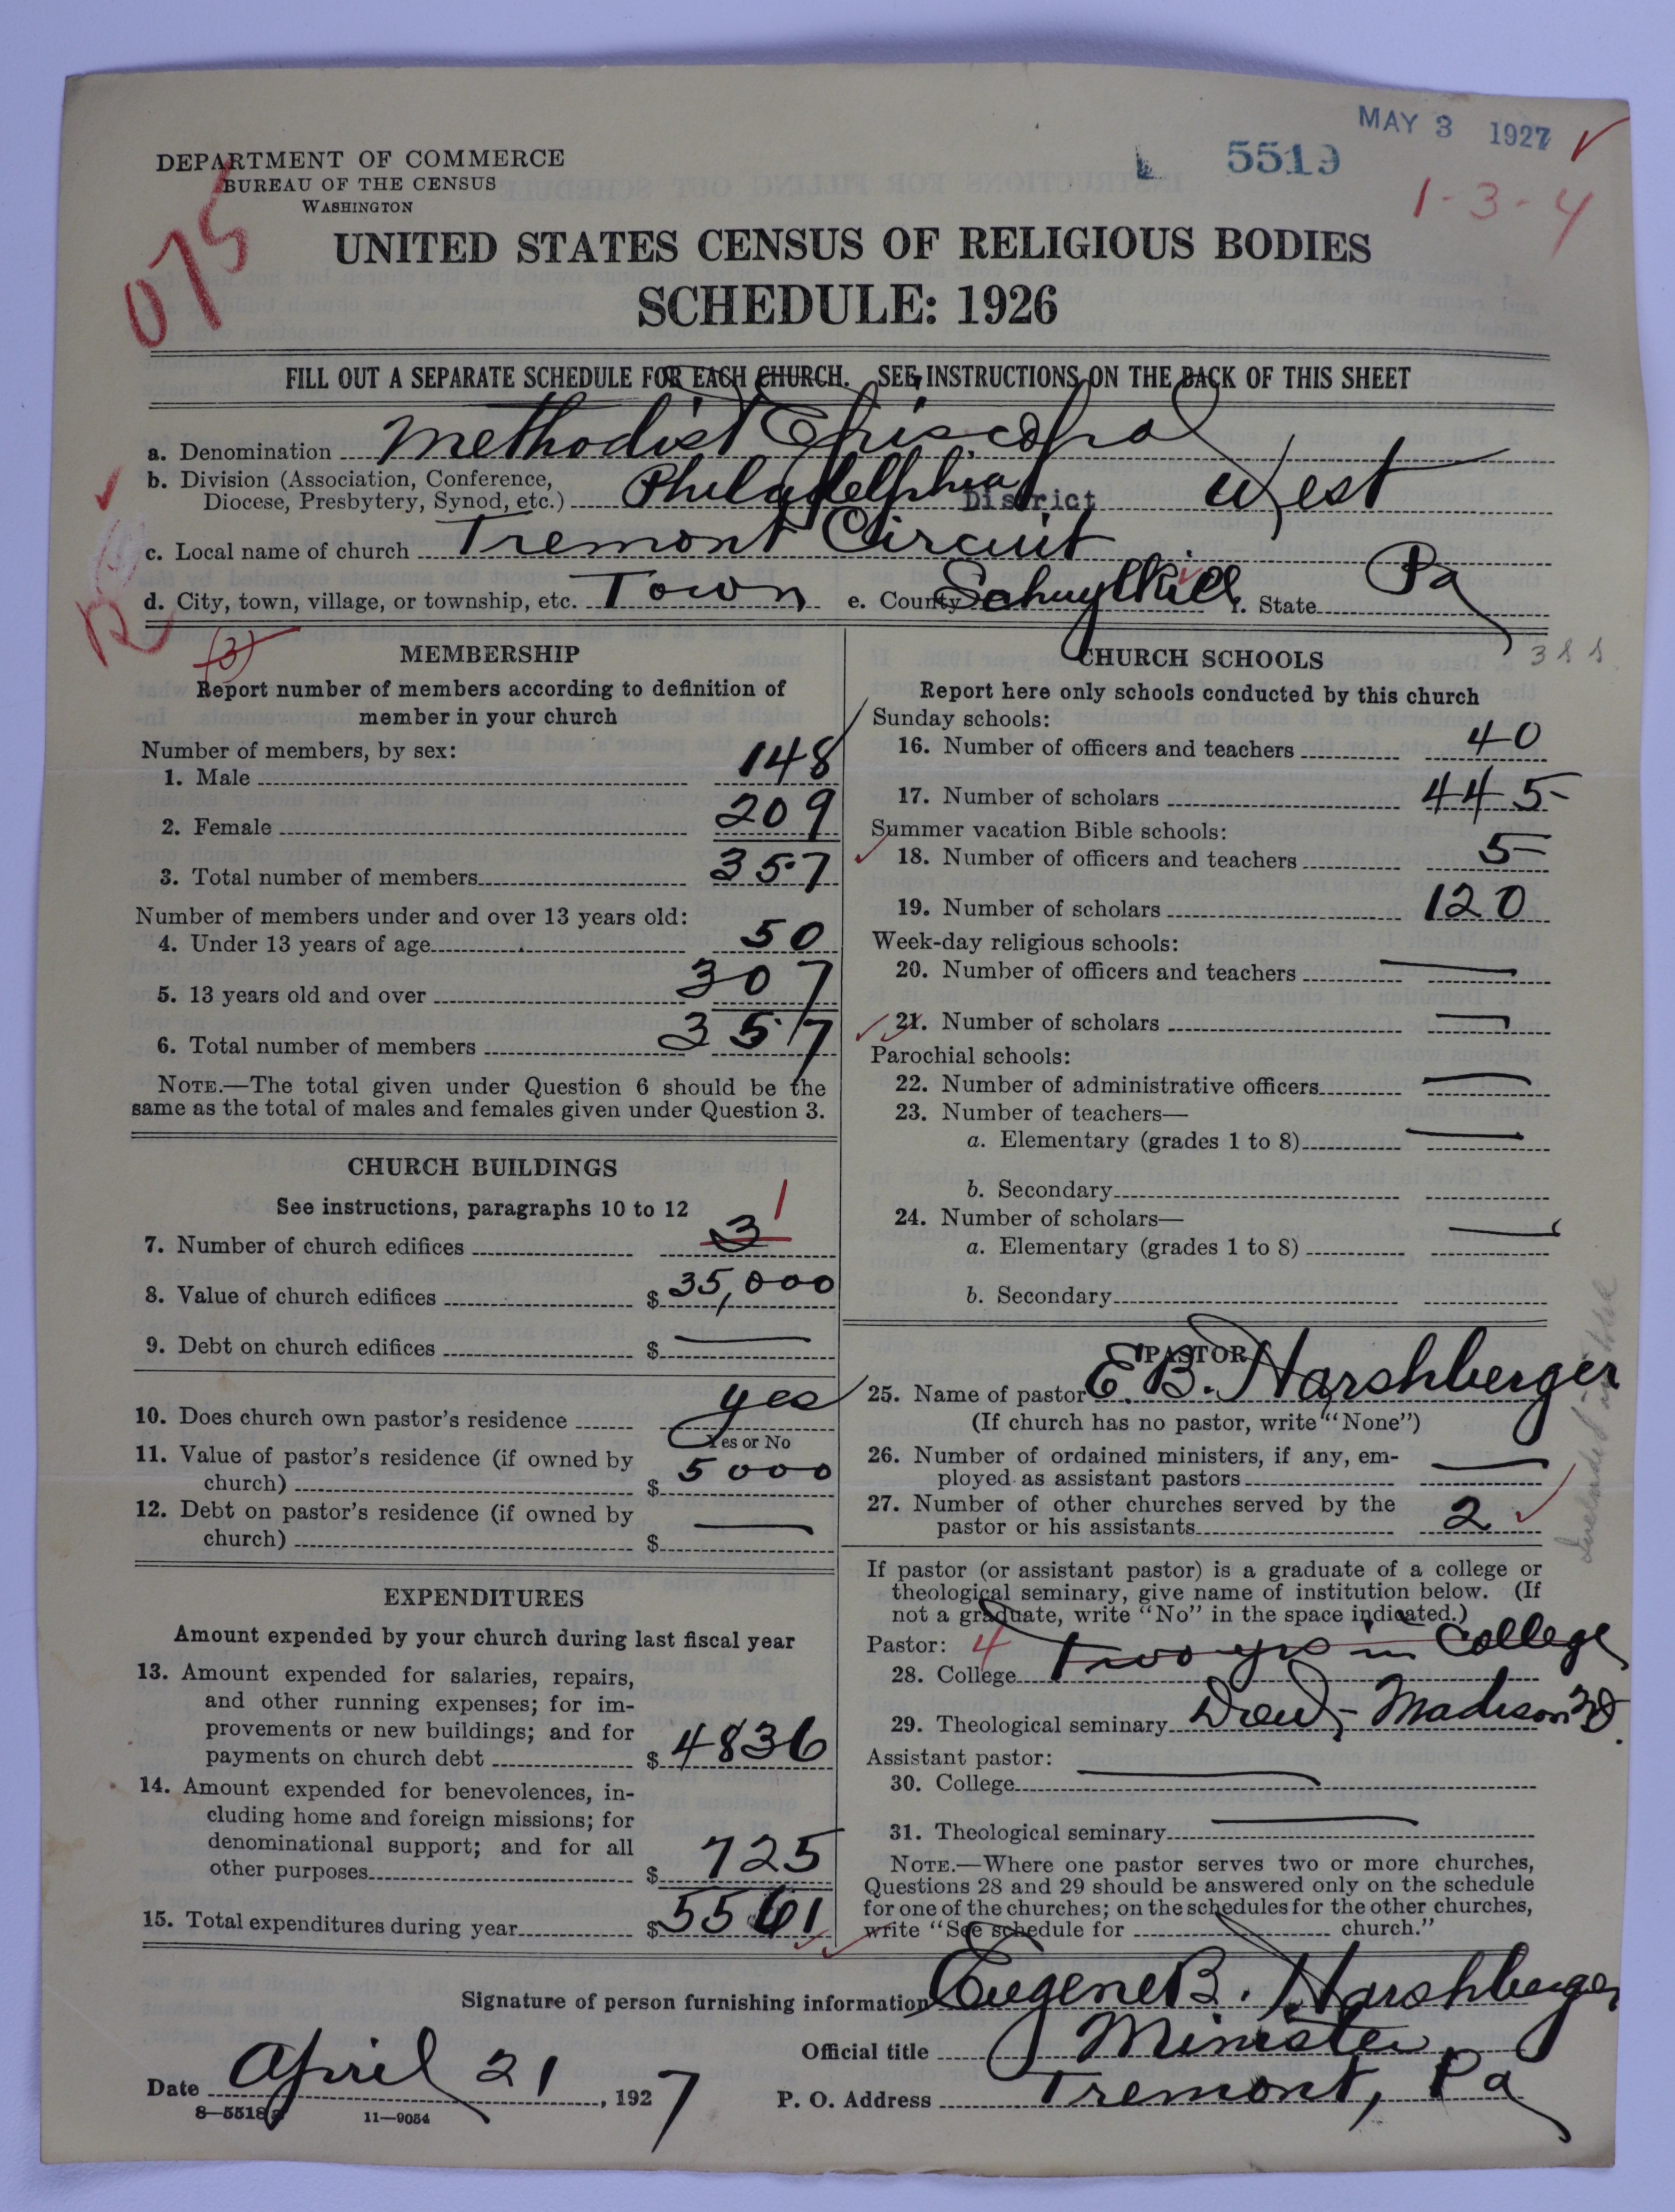 MAY 3 1927
5519
1-3-4
075
DEPARTMENT OF COMMERCE
BUREAU OF THE CENSUS
WASHINGTON
UNITED STATES CENSUS OF RELIGIOUS BODIES
SCHEDULE: 1926
FILL OUT A SEPARATE SCHEDULE FOR EACH CHURCH. SEE INSTRUCTIONS ON THE BACK OF THIS SHEET
a. Denomination Methodist Episcopal
b. Division (Association, Conference,
Diocese, Presbytery, Synod, etc.) Philadelphia District West
c. Local name of church Tremont Circuit
d. City, town, village, or township, etc. Town e. County Schuylkill f. State Pa
(3)
MEMBERSHIP
Report number of members according to definition of
member in your church
Number of members, by sex:
1. Male 148
2. Female 209
3. Total number of members 357
Number of members under and over 13 years old:
4. Under 13 years of age 50
5. 13 years old and over 307
6. Total number of members 357
NOTE.—The total given under Question 6 should be the
same as the total of males and females given under Question 3.
CHURCH BUILDINGS
See instructions, paragraphs 10 to 12
7. Number of church edifices 3 1
8. Value of church edifices $ 35,000
9. Debt on church edifices $ —
10. Does church own pastor's residence yes
Yes or No
11. Value of pastor's residence (if owned by
church) $ 5000
12. Debt on pastor's residence (if owned by
church) $ —
EXPENDITURES
Amount expended by your church during last fiscal year
13. Amount expended for salaries, repairs,
and other running expenses; for im-
provements or new buildings; and for
payments on church debt $ 4836
14. Amount expended for benevolences, in-
cluding home and foreign missions; for
denominational support; and for all
other purposes $ 725
15. Total expenditures during year $ 5561
CHURCH SCHOOLS
Report here only schools conducted by this church
Sunday schools:
16. Number of officers and teachers 40
17. Number of scholars 445
Summer vacation Bible schools:
18. Number of officers and teachers 5
19. Number of scholars 120
Week-day religious schools:
20. Number of officers and teachers —
21. Number of scholars —
Parochial schools:
22. Number of administrative officers —
23. Number of teachers—
a. Elementary (grades 1 to 8) —
b. Secondary
24. Number of scholars—
a. Elementary (grades 1 to 8) —
b. Secondary
PASTOR
25. Name of pastor E. B. Harshberger
(If church has no pastor, write "None")
26. Number of ordained ministers, if any, em-
ployed as assistant pastors —
27. Number of other churches served by the
pastor or his assistants 2
If pastor (or assistant pastor) is a graduate of a college or
theological seminary, give name of institution below. (If
not a graduate, write "No" in the space indicated.)
Pastor: 4
28. College Two yrs in College
29. Theological seminary Drew, - Madison
Assistant pastor:
30. College —
31. Theological seminary —
NOTE.—Where one pastor serves two or more churches,
Questions 28 and 29 should be answered only on the schedule
for one of the churches; on the schedules for the other churches,
write "See schedule for church."
Signature of person furnishing information Eugene B. Harshberger
Official title Minister
Date April 21, 1927
P. O. Address Tremont, Pa
8—5518a 11—9054